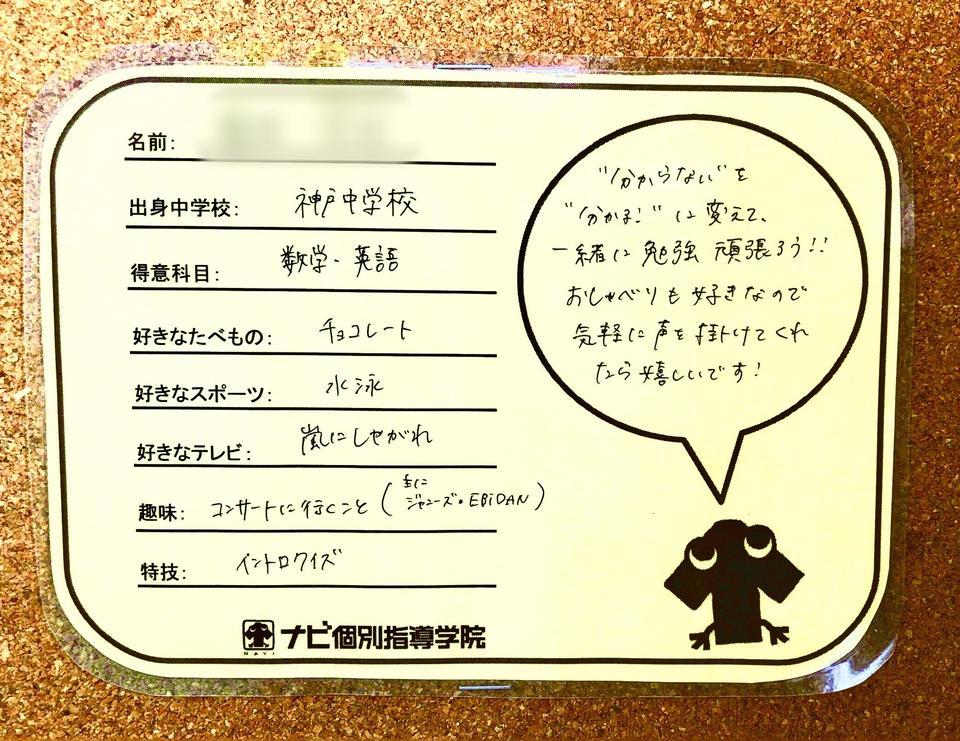 名前:
出身中学校: 神戸中学校
得意科目: 数学・英語
好きなたべもの: チョコレート
好きなスポーツ: 水泳
好きなテレビ: 嵐にしやがれ
趣味: コンサートに行くこと (主にジャニーズ・EBiDAN)
特技: イントロクイズ
NAVI ナビ個別指導学院
"分からない"を
"分かる!"に変えて、
一緒に勉強頑張ろう!!
おしゃべりも好きなので
気軽に声を掛けてくれ
たら嬉しいです!